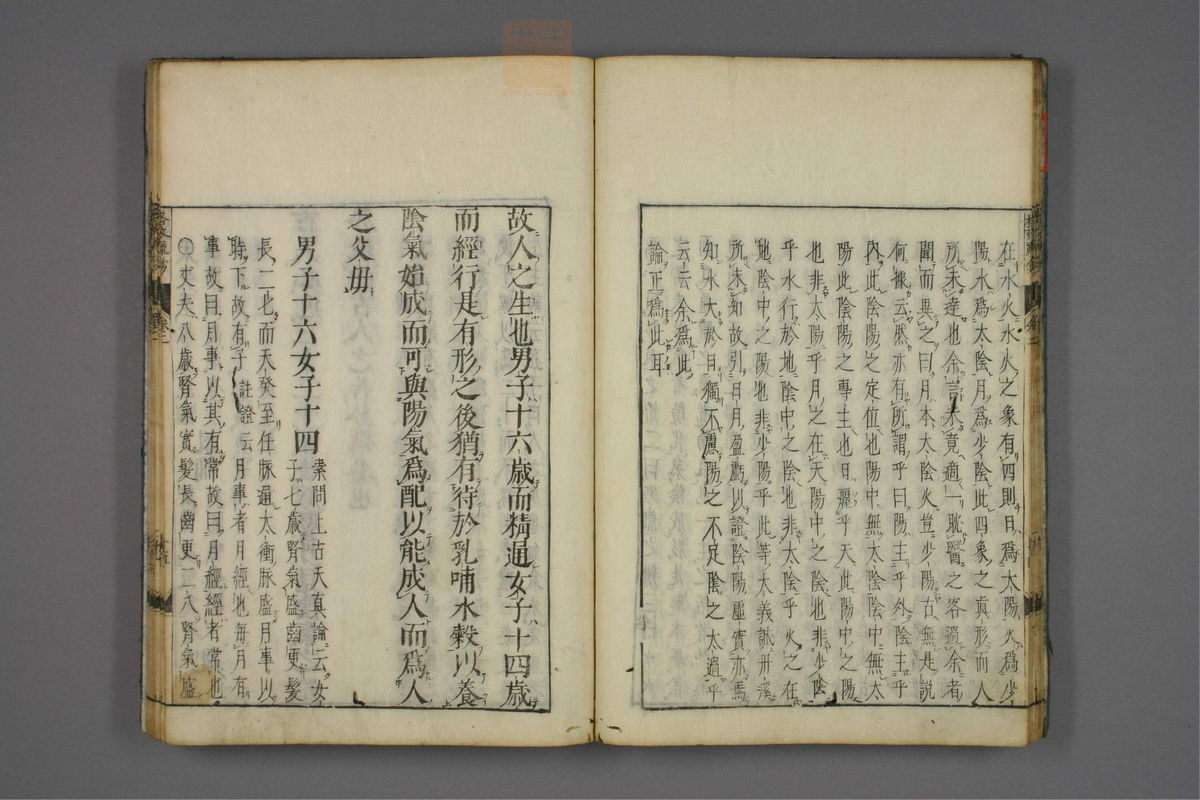 在水火水火之象有四則日爲太陽火爲少
陽水爲太陰月爲少陰此四象之眞形而人
所未達也余言未竟適一耽醫之客過余者
聞而異之曰月本太陰火豈少陽古無是說
何據云然亦有所謂乎曰陽主乎外陰主乎
內此陰陽之定位也陽中無太陰陰中無太
陽此陰陽之專主也日麗乎天此陽中之陽
也非太陽乎月之在天陽中之陰也非少陰
乎水行於地陰中之陰也非太陰乎火之在
地陰中之陽也非少陽乎此等大義誠丹溪
所未知故引日月盈虧以證陰陽虛實亦焉
知水大於日獨不慮陽之不足陰之太過乎
云云余爲此
論正爲此耳
故人之生也男子十六歲而精通女子十四歲
而經行是有形之後猶有待於乳哺水穀以養
陰氣始成而可與陽氣爲配以能成人而爲人
之父毋
男子十六女子十四
素問上古天真論云女
子七歲腎氣盛齒更髮
長二七而天癸至任脈通太衝脈盛月事以
時下故有子 註證云月事者月經也每月有
事故曰月事以其有常故曰月經經者常也
○丈夫八歲腎氣實髮長齒更二八腎氣盛